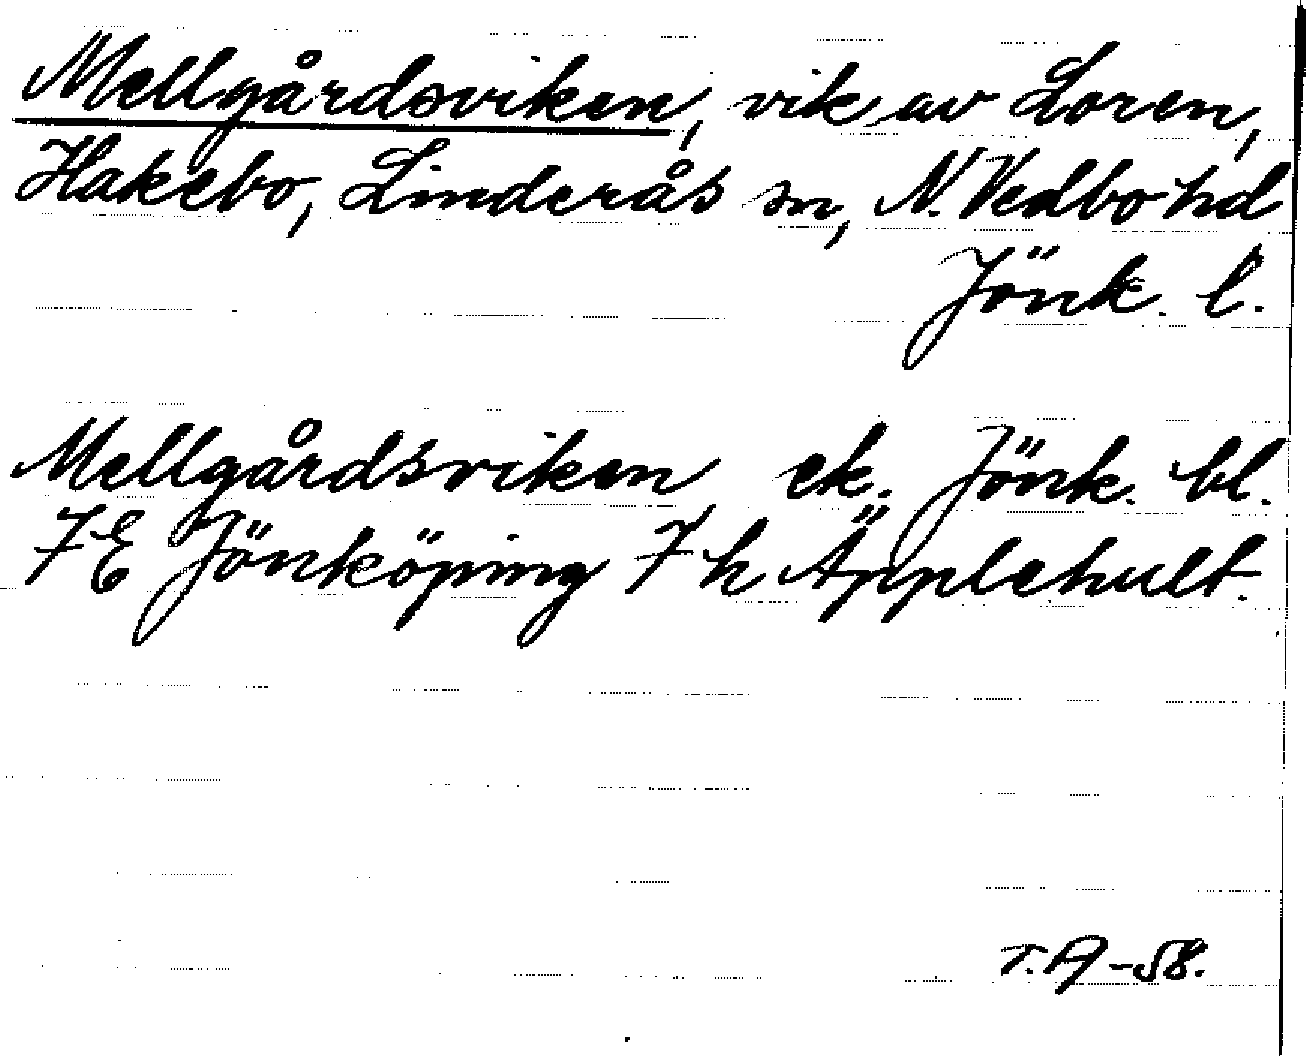 Mellgårdsviken, vik av Loren,
Hakebo, Linderås sn, N. Vedbo hd
Jönk. l.
Mellgårdsviken ek. Jönk. bl.
7E Jönköping 7 h Äpplehult.
T. A -58.